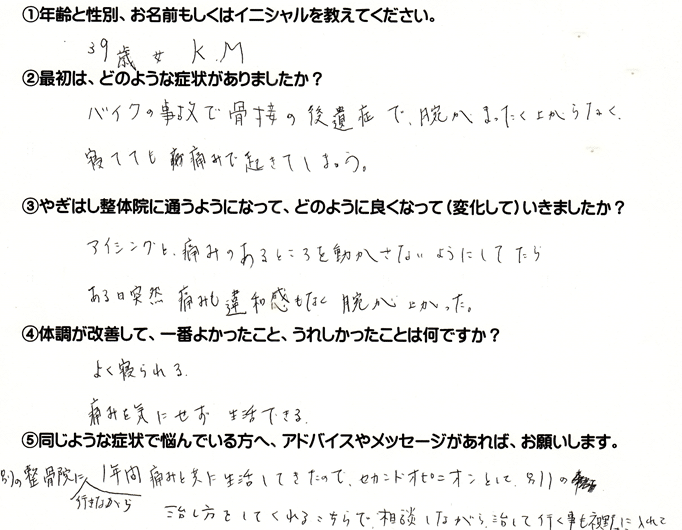 ①年齢と性別、お名前もしくはイニシャルを教えてください。
39歳 女 K.M
②最初は、どのような症状がありましたか？
バイクの事故で骨接の後遺症で、腕が まったく上がらなく、
寝てても 痛みで起きてしまう。
③やぎはし整体院に通うようになって、どのように良くなって（変化して）いきましたか？
アイシングと、痛みのあるところを動かさないようにしてたら
ある日突然 痛みも違和感もなく 腕が上がった。
④体調が改善して、一番よかったこと、うれしかったことは何ですか？
よく寝られる.
痛みを気にせず 生活できる.
⑤同じような症状で悩んでいる方へ、アドバイスやメッセージがあれば、お願いします。
別の整骨院に 1年間 痛みと共に生活してきたので、セカンドオピニオンとして、別の
行きながら
治し方をしてくれるこちらで、相談しながら、治して行く事も視野に入れて